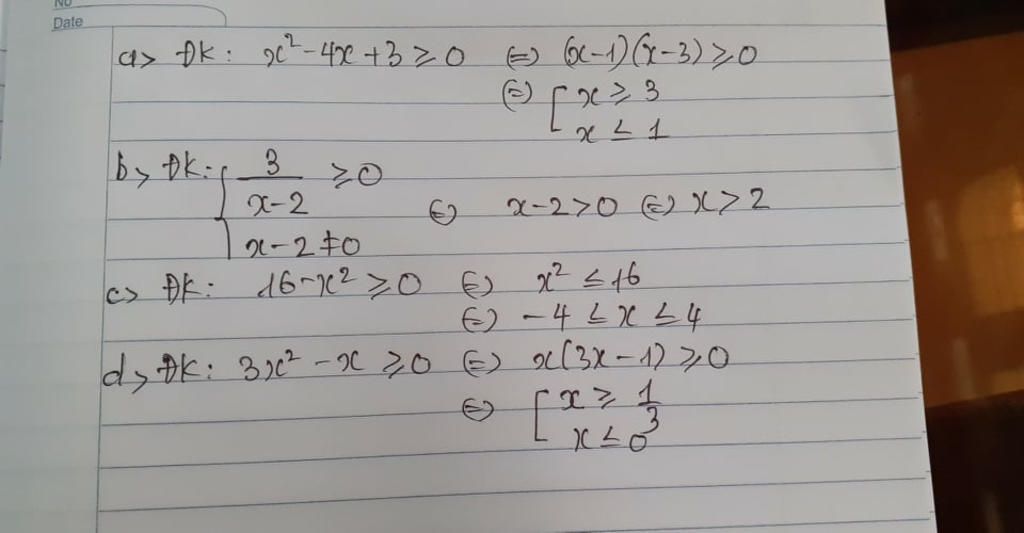 No
Date
a> ĐK: x² - 4x + 3 ≥ 0 ⇔ (x-1)(x-3) ≥ 0
⇔ [ x ≥ 3
x ≤ 1
b> ĐK: { 3/(x-2) ≥ 0
x-2 ≠ 0 ⇔ x-2 > 0 ⇔ x > 2
c> ĐK: 16 - x² ≥ 0 ⇔ x² ≤ 16
⇔ -4 ≤ x ≤ 4
d> ĐK: 3x² - x ≥ 0 ⇔ x(3x-1) ≥ 0
⇔ [ x ≥ 1/3
x ≤ 0